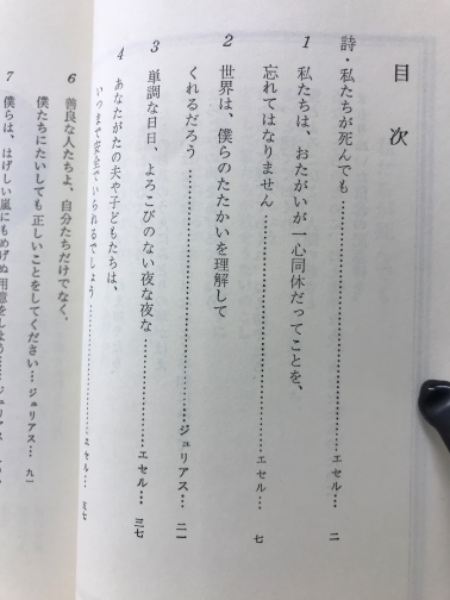 目次
詩・私たちが死んでも……エセル… 二
1 私たちは、おたがいが一心同体だってことを、
忘れてはなりません……エセル… 七
2 世界は、僕らのたたかいを理解して
くれるだろう……ジュリアス… 二一
3 単調な日日、よろこびのない夜な夜な……エセル… 三七
4 あなたがたの夫や子どもたちは、
いつまで安全でいられるでしょう……エセル…
6 善良な人たちよ、自分たちだけでなく、
僕たちにたいしても正しいことをしてください… ジュリアス… 九一
7 僕らは、はげしい嵐にもめげぬ用意をしよう……ジュリアス